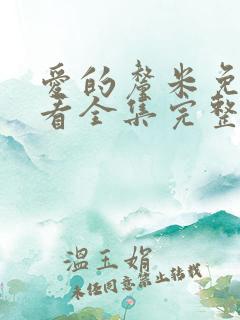 爱的釐米免
看全集完整
温玉娟
未经同意禁止转载